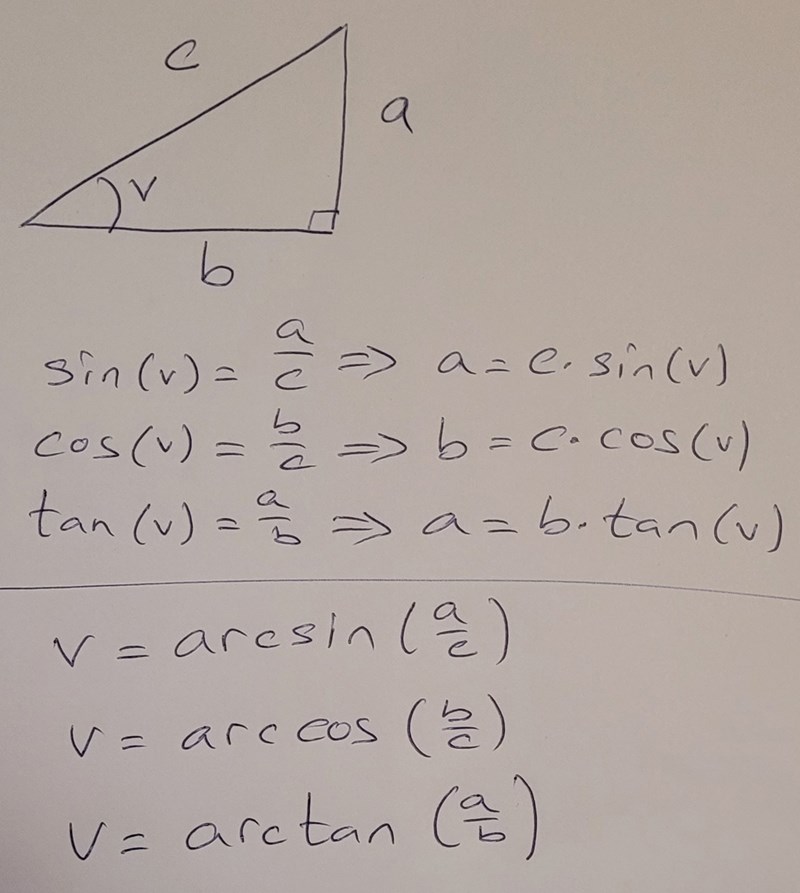 c
a
v
b
sin(v) = a/c ⇒ a = c · sin(v)
cos(v) = b/c ⇒ b = c · cos(v)
tan(v) = a/b ⇒ a = b · tan(v)
v = arcsin(a/c)
v = arccos(b/c)
v = arctan(a/b)